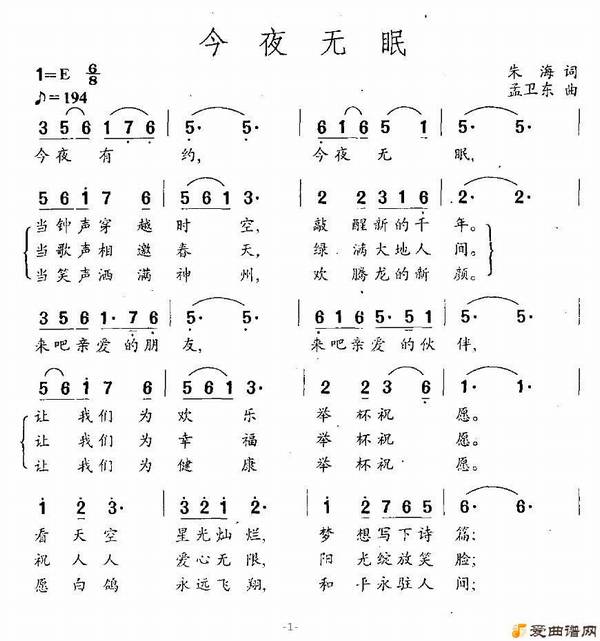 今夜无眠
1=E 6/8
朱海词
♪=194
孟卫东 曲
3 5 6 1 7 6 | 5· 5· | 6 1 6 5 1 | 5· 5· |
今夜有约, 今夜无眠,
5 6 1 7 6 | 5 6 1 3· | 2 2 3 1 6 | 2· 2· |
当钟声穿越时空, 敲醒新的千年。
当歌声相邀春天, 绿满大地人间。
当笑声洒满神州, 欢腾龙的新颜。
3 5 6 1· 7 6 | 5· 5· | 6 1 6 5· 5 1 | 5· 5· |
来吧亲爱的朋友, 来吧亲爱的伙伴,
5 6 1 7 6 | 5 6 1 3· | 2 2 3 6 | 1· 1· |
让我们为欢乐 举杯祝愿。
让我们为幸福 举杯祝愿。
让我们为健康 举杯祝愿。
1 2 3· | 3 2 1 2· | 1 2 7 6 5 | 6· 6· |
看天空 星光灿烂, 梦想写下诗篇;
祝人人 爱心无限, 阳光绽放笑脸;
愿白鸽 永远飞翔, 和平永驻人间;
-1-
爱曲谱网